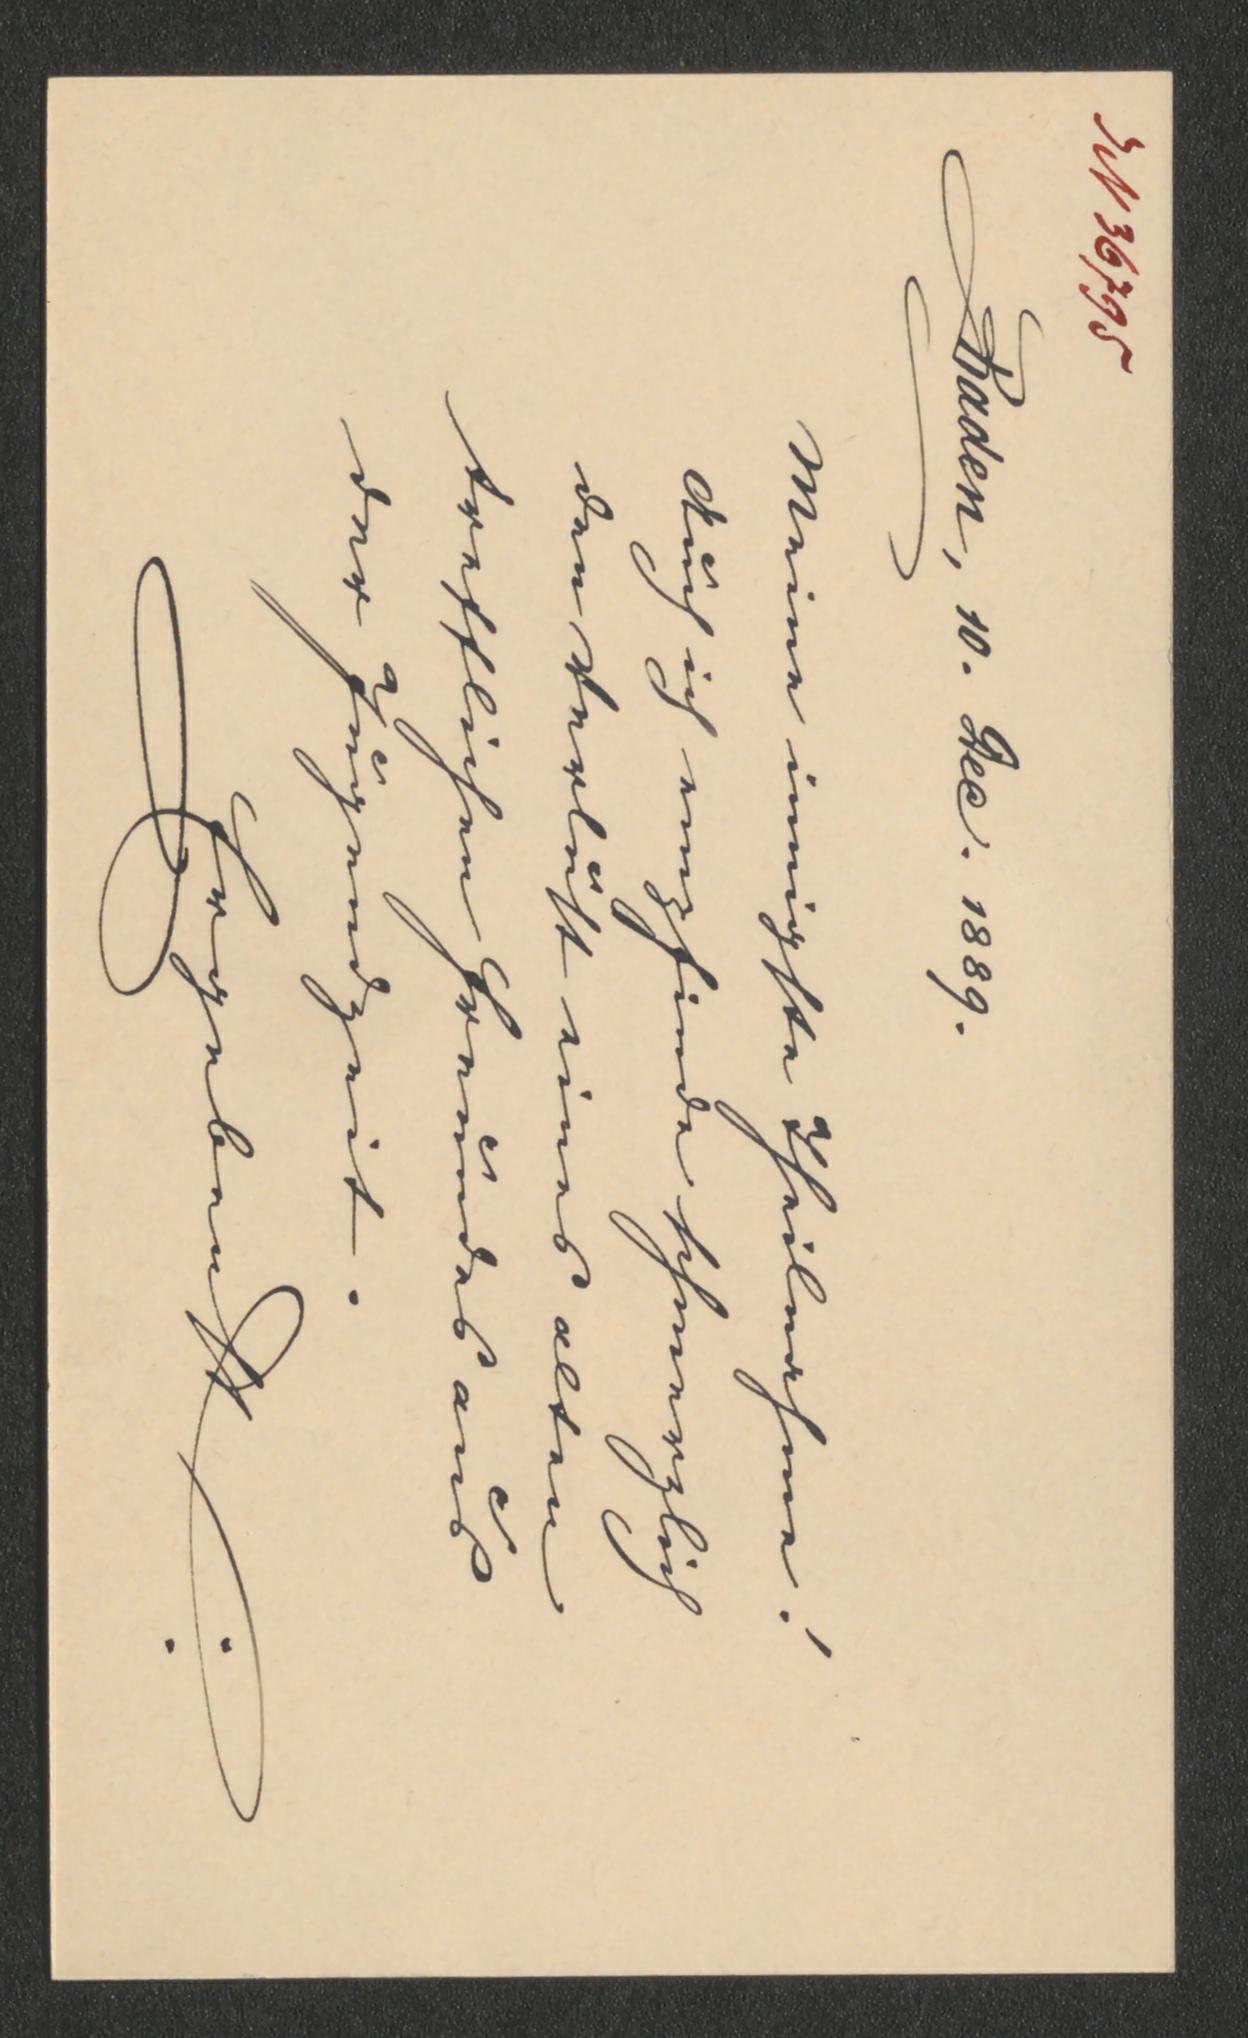 IN 36795
Baden, 10. Dec. 1889.
Meine innigste Theilnahme!
Auch ich empfinde schmerzlich
den Verlust eines alten
trefflichen Freundes aus
der Jugendzeit.
Ergebenst